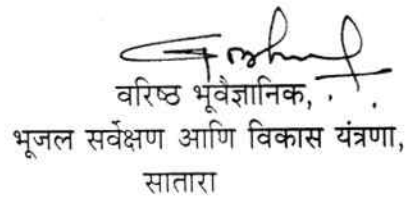 वरिष्ठ भूवैज्ञानिक,
भूजल सर्वेक्षण आणि विकास यंत्रणा,
सातारा